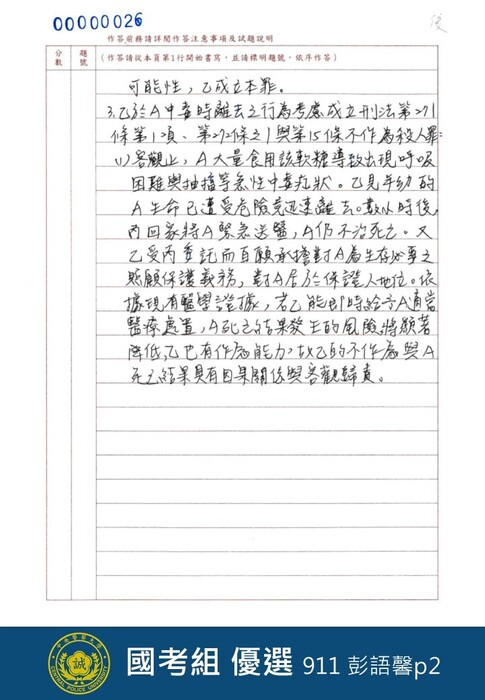 00000026
作答前務請詳閱作答注意事項及試題說明
分數
題號
(作答請從本頁第1行開始書寫，並請標明題號，依序作答)
可能性，乙成立本罪。
3.乙於A中毒時離去之行為考慮成立刑法第271
條第1項、第272條之1與第15條不作為殺人罪
(1)客觀上，A大量食用該軟糖導致出現呼吸
困難與抽搐等急性中毒症狀。乙見年幼的
A生命已遭受危險竟迅速離去。數小時後，
丙回家將A緊急送醫，A仍不治死亡。又
乙受丙委託而自願承擔對A為生存必要之
照顧保護義務，對A居於保證人地位。依
據現有醫學證據，若乙能即時給予A適當
醫療處置，A死亡結果發生的風險將顯著
降低，乙也有作為能力，故乙的不作為與A
死亡結果具有因果關係與客觀歸責。
誠
CENTRAL POLICE UNIVERSITY
國考組 優選 911 彭語馨p2